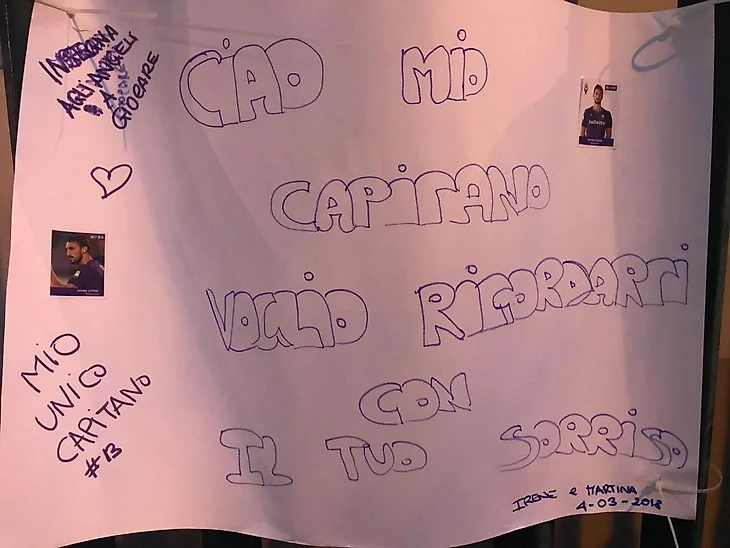 AGLI ANGELI
A
GIOCARE
CIAO MIO
CAPITANO
VOGLIO RICORDARTI
CON
IL TUO SORRISO
MIO
UNICO
CAPITANO
#13
IRENE e MARTINA
4-03-2018